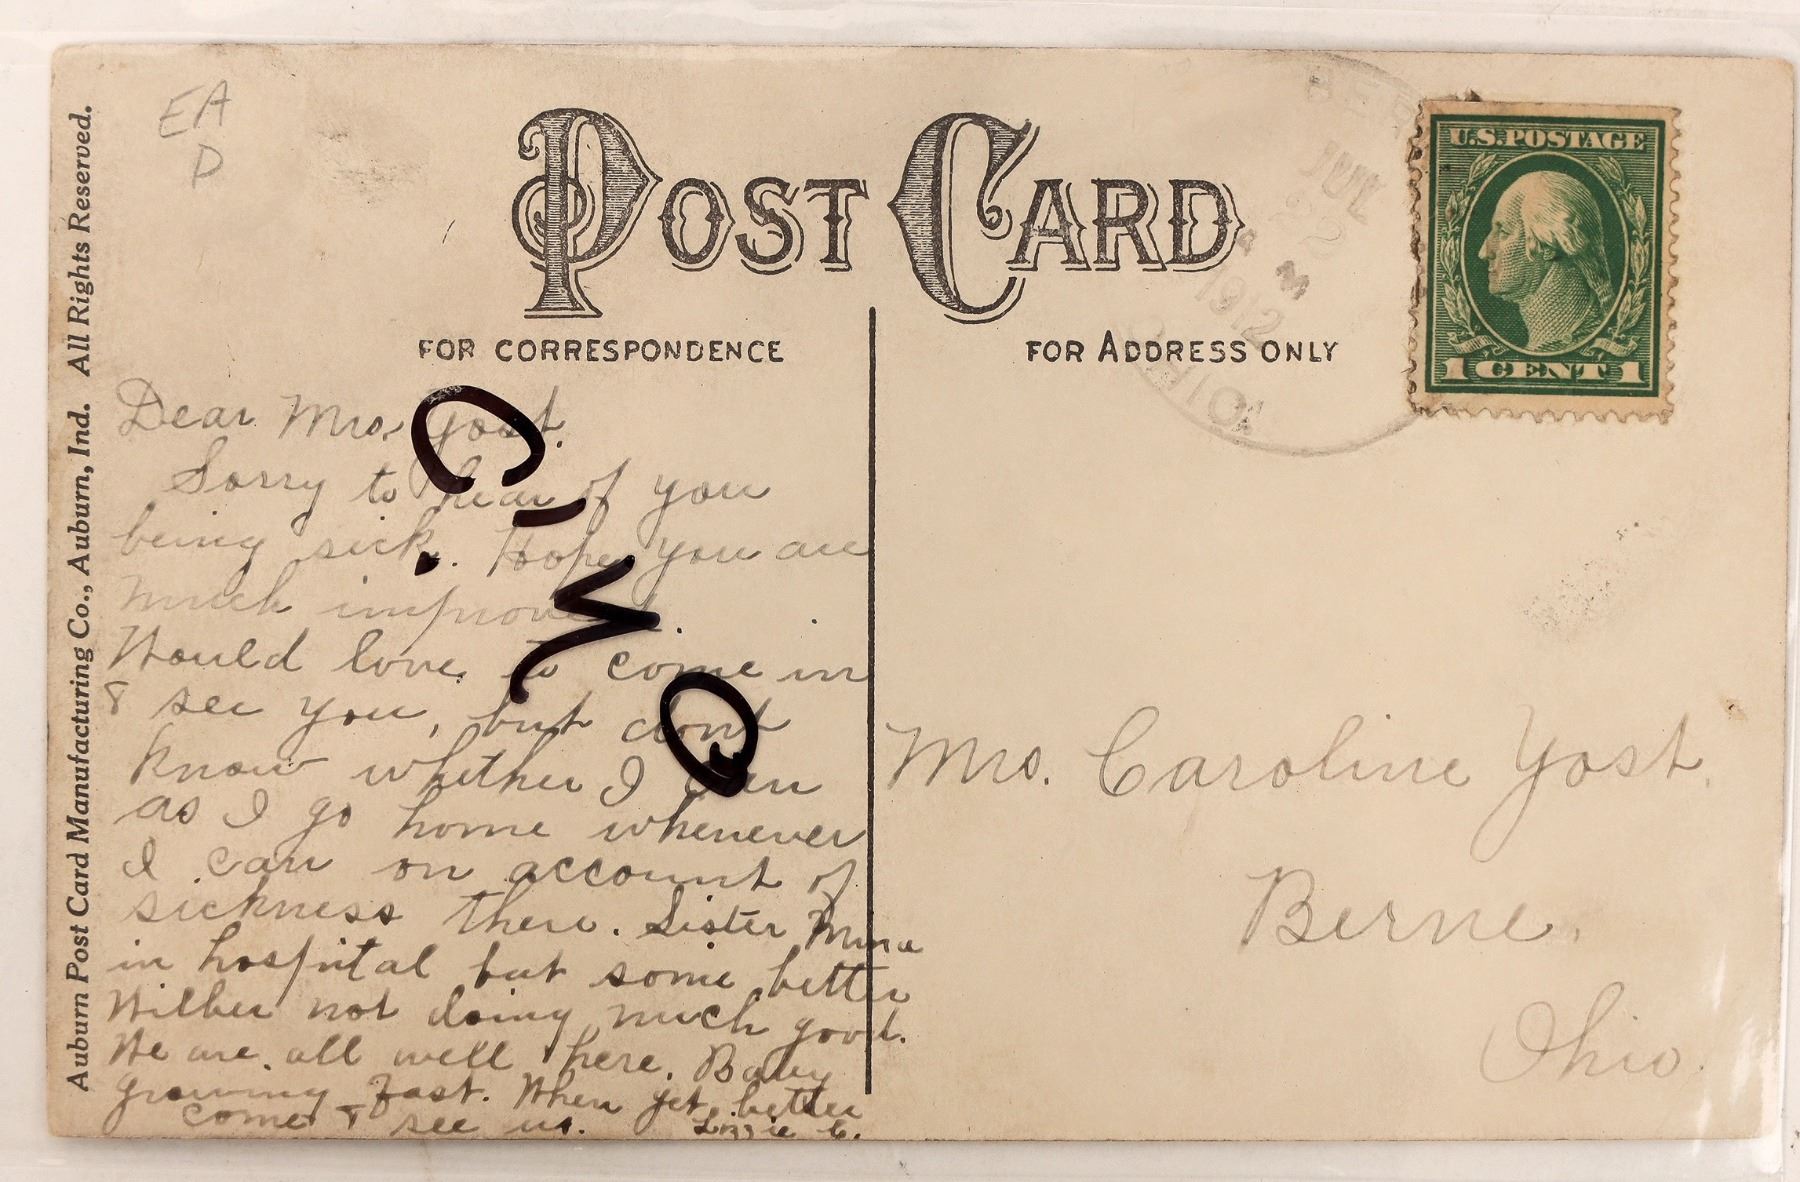 EA
D
POST CARD
FOR CORRESPONDENCE
FOR ADDRESS ONLY
Auburn Post Card Manufacturing Co., Auburn, Ind. All Rights Reserved.
BER
JUL
22
A M
1912
OHIO
U.S.POSTAGE
1 CENT 1
Dear Mrs. Yost.
Sorry to hear of you
being sick. Hope you are
much improved.
Would love to come in
& see you, but dont
know whether I can
as I go home whenever
I can on account of
sickness there. Sister
in hospital but some better
Wilber not doing much good.
We are all well here. Baby
growing fast. When get better
come & see us. Lizzie C.
Mrs. Caroline Yost.
Berne.
Ohio.